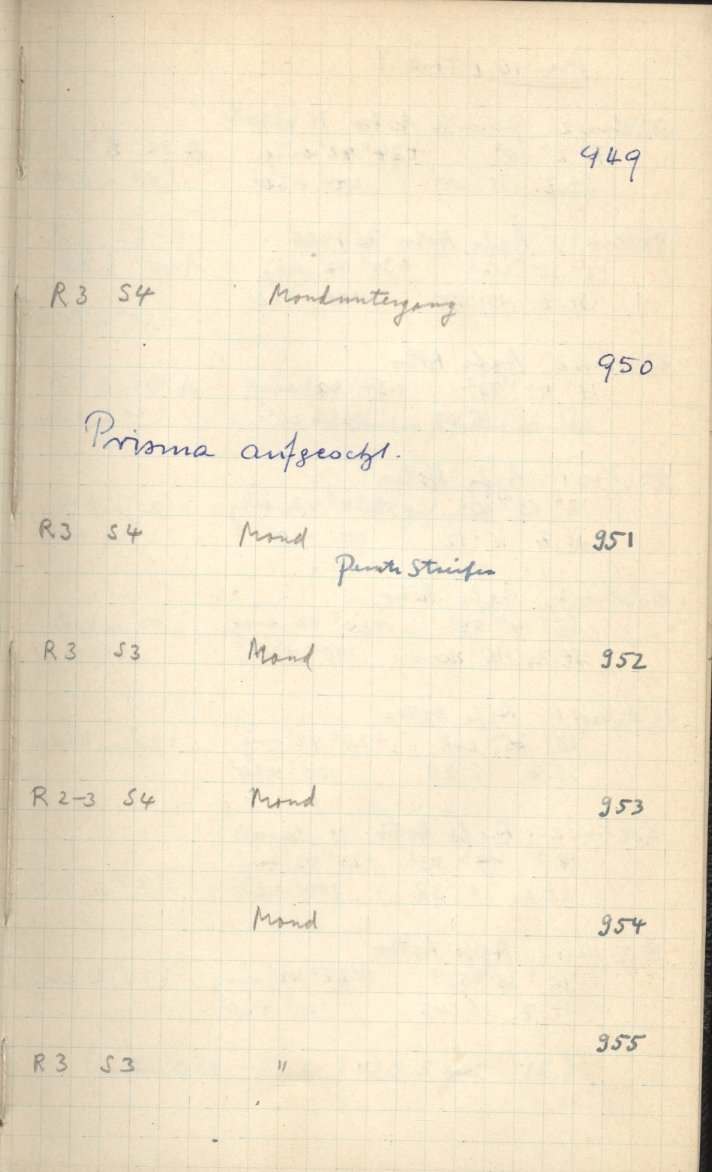 949
R3 S4 Monduntergang
950
Prisma
R3 S4 Mond 951
Streifen
R3 S3 Mond 952
R2-3 S4 Mond 953
Mond 954
955
R3 S3 "